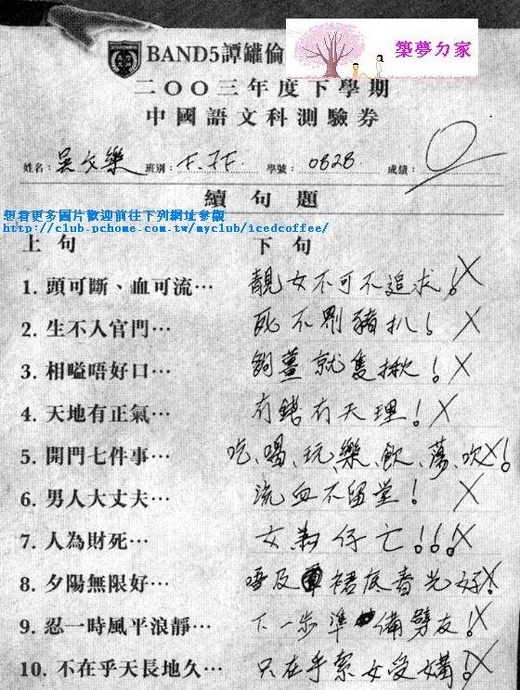 築夢夯家
BAND5譚罐倫
二〇〇三年度下學期
中國語文科測驗券
姓名: 吳文樂 班別: 學號: 0828 成績: 0
續句題
想看更多圖片歡迎前往下列網址參觀
http://club.pchome.com.tw/myclub/icedcoffee/
上句 下句
1. 頭可斷、血可流… 靚女不可不追求!
2. 生不入官門… 死不剔豬扒!
3. 相嗌唔好口… 鉰薑就隻揪!
4. 天地有正氣… 有錢有天理!
5. 開門七件事… 吃、喝、玩、樂、飲、蕩、吹!
6. 男人大丈夫… 流血不留堂!
7. 人為財死… 女為仔亡!!!
8. 夕陽無限好… 唔及裙底春光好!
9. 忍一時風平浪靜… 下一步準備劈友!
10. 不在乎天長地久… 只在乎索女受媾!